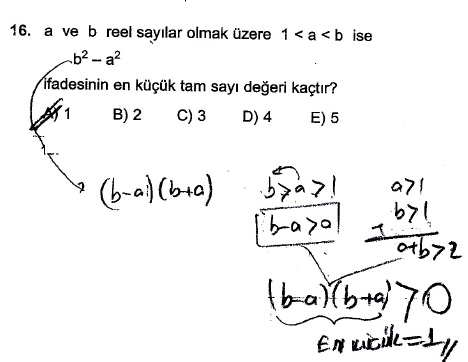 16. a ve b reel sayılar olmak üzere 1 < a < b ise
b² – a²
ifadesinin en küçük tam sayı değeri kaçtır?
A) 1 B) 2 C) 3 D) 4 E) 5
(b-a)(b+a)
b>a>1
b-a>0
a>1
b>1
+
a+b>2
(b-a)(b+a)>0
En küçük=1//